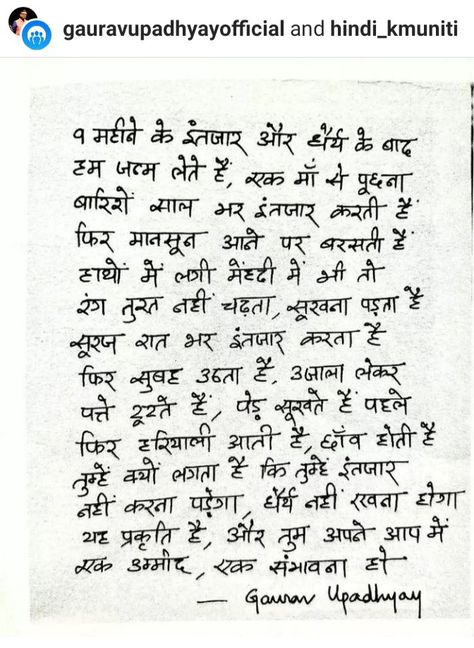 gauravupadhyayofficial and hindi_kmuniti
९ महीने के इंतजार और धैर्य के बाद
हम जन्म लेते हैं, एक माँ से पूछना
बारिशें साल भर इंतजार करती हैं
फिर मानसून आने पर बरसती हैं
हाथों में लगी मेंहदी में भी तो
रंग तुरत नहीं चढ़ता, सूखना पड़ता है
सूरज रात भर इंतजार करता है
फिर सुबह उठता है, उजाला लेकर
पत्ते टूटते हैं, पेड़ सूखते हैं पहले
फिर हरियाली आती है, छाँव होती है
तुम्हें क्यों लगता है कि तुम्हें इंतजार
नहीं करना पड़ेगा, धैर्य नहीं रखना होगा
यह प्रकृति है, और तुम अपने आप में
एक उम्मीद, एक संभावना हो
— Gaurav Upadhyay